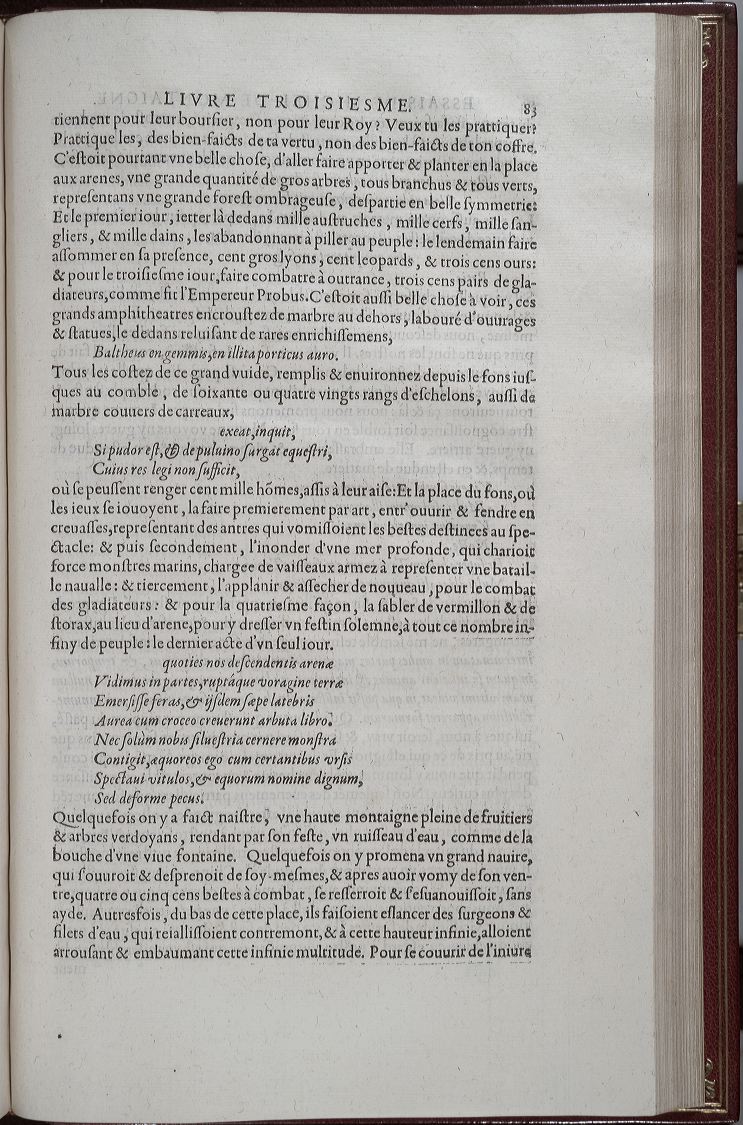 LIVRE TROISIESME. 83
tiennent pour leur boursier, non pour leur Roy? Veux tu les prattiquer?
Prattique les, des bien-faicts de ta vertu, non des bien-faicts de ton coffre.
C'eſtoit pourtant vne belle choſe, d'aller faire apporter & planter en la place
aux arenes, vne grande quantité de gros arbres, tous branchus & tous verts,
repreſentans vne grande foreſt ombrageuſe, deſpartie en belle ſymmetrie:
Et le premier iour, ietter là dedans mille auſtruches, mille cerfs, mille ſan-
gliers, & mille dains, les abandonnant à piller au peuple: le lendemain faire
aſſommer en ſa preſence, cent gros lyons, cent leopards, & trois cens ours:
& pour le troiſieſme iour, faire combatre à outrance, trois cens pairs de gla-
diateurs, comme fit l'Empereur Probus. C'eſtoit auſſi belle choſe à voir, ces
grands amphitheatres encrouſtez de marbre au dehors, labouré d'ouurages
& ſtatues, le dedans reluiſant de rares enrichiſſemens,
Baltheus en gemmis, en illita porticus auro.
Tous les coſtez de ce grand vuide, remplis & enuironnez depuis le fons iuſ-
ques au comble, de ſoixante ou quatre vingts rangs d'eſchelons, auſſi de
marbre couuers de carreaux,
exeat, inquit,
Si pudor eſt, & de puluino ſurgat equeſtri,
Cuius res legi non ſufficit,
où ſe peuſſent renger cent mille hõmes, aſſis à leur aiſe: Et la place du fons, où
les ieux ſe iouoyent, la faire premierement par art, entr'ouurir & fendre en
creuaſſes, repreſentant des antres qui vomiſſoient les beſtes deſtinees au ſpe-
ctacle: & puis ſecondement, l'inonder d'vne mer profonde, qui charioit
force monſtres marins, chargee de vaiſſeaux armez à repreſenter vne batail-
le naualle: & tiercement, l'applanir & aſſecher de nouueau, pour le combat
des gladiateurs: & pour la quatrieſme façon, la ſabler de vermillon & de
ſtorax, au lieu d'arene, pour y dreſſer vn feſtin ſolemne, à tout ce nombre in-
finy de peuple: le dernier acte d'vn ſeul iour.
quoties nos deſcendentis arenæ
Vidimus in partes, ruptáque voragine terræ
Emerſiſſe feras, & ijſdem ſæpe latebris
Aurea cum croceo creuerunt arbuta libro.
Nec ſolùm nobis ſilueſtria cernere monſtra
Contigit, æquoreos ego cum certantibus vrſis
Spectaui vitulos, & equorum nomine dignum,
Sed deforme pecus.
Quelquefois on y a faict naiſtre, vne haute montaigne pleine de fruitiers
& arbres verdoyans, rendant par ſon feſte, vn ruiſſeau d'eau, comme de la
bouche d'vne viue fontaine. Quelquefois on y promena vn grand nauire,
qui s'ouuroit & deſprenoit de ſoy-meſmes, & apres auoir vomy de ſon ven-
tre, quatre ou cinq cens beſtes à combat, ſe reſſerroit & s'eſuanouiſſoit, ſans
ayde. Autresfois, du bas de cette place, ils faiſoient eſlancer des ſurgeons &
filets d'eau, qui reialliſſoient contremont, & à cette hauteur infinie, alloient
arrouſant & embaumant cette infinie multitude. Pour ſe couurir de l'iniure